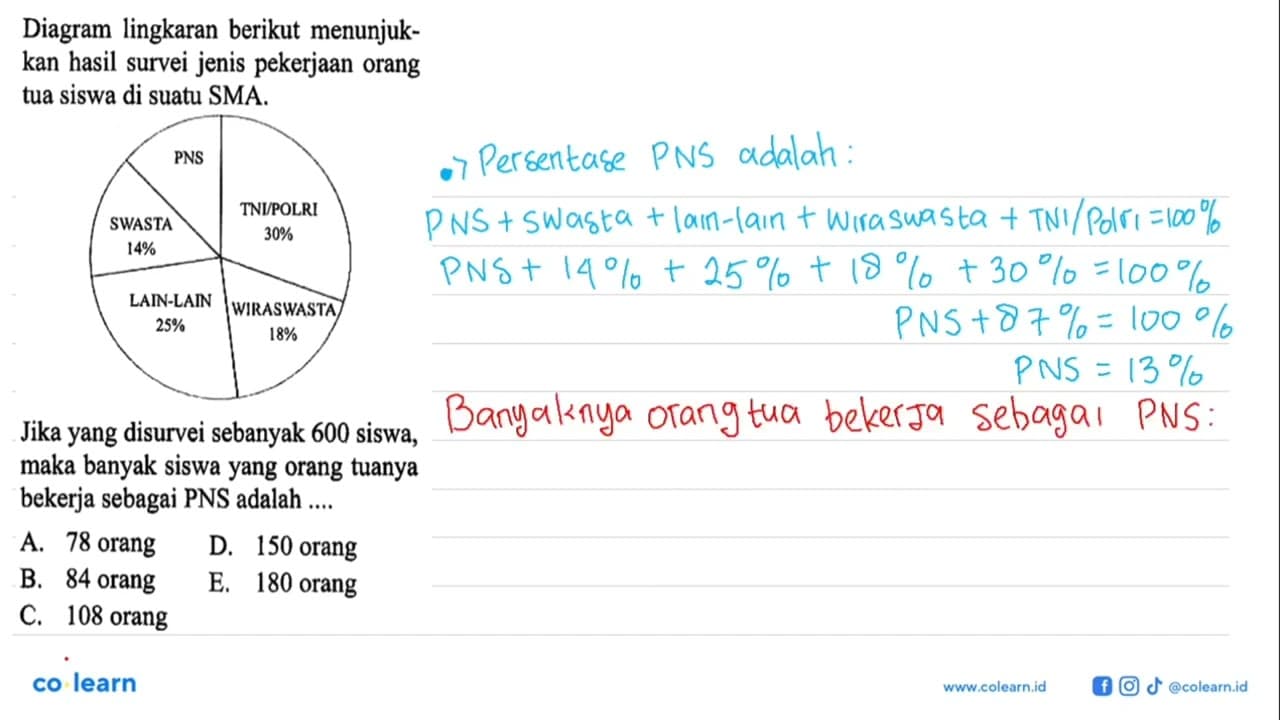 Diagram lingkaran berikut menunjuk-
kan hasil survei jenis pekerjaan orang
tua siswa di suatu SMA.
PNS
TNI/POLRI
30%
SWASTA
14%
LAIN-LAIN
25%
WIRASWASTA
18%
Jika yang disurvei sebanyak 600 siswa,
maka banyak siswa yang orang tuanya
bekerja sebagai PNS adalah ....
A. 78 orang D. 150 orang
B. 84 orang E. 180 orang
C. 108 orang
•> Persentase PNS adalah:
PNS + swasta + lain-lain + wiraswasta + TNI/Polri = 100%
PNS + 14% + 25% + 18% + 30% = 100%
PNS + 87% = 100%
PNS = 13%
Banyaknya orang tua bekerja sebagai PNS:
co learn
www.colearn.id @colearn.id